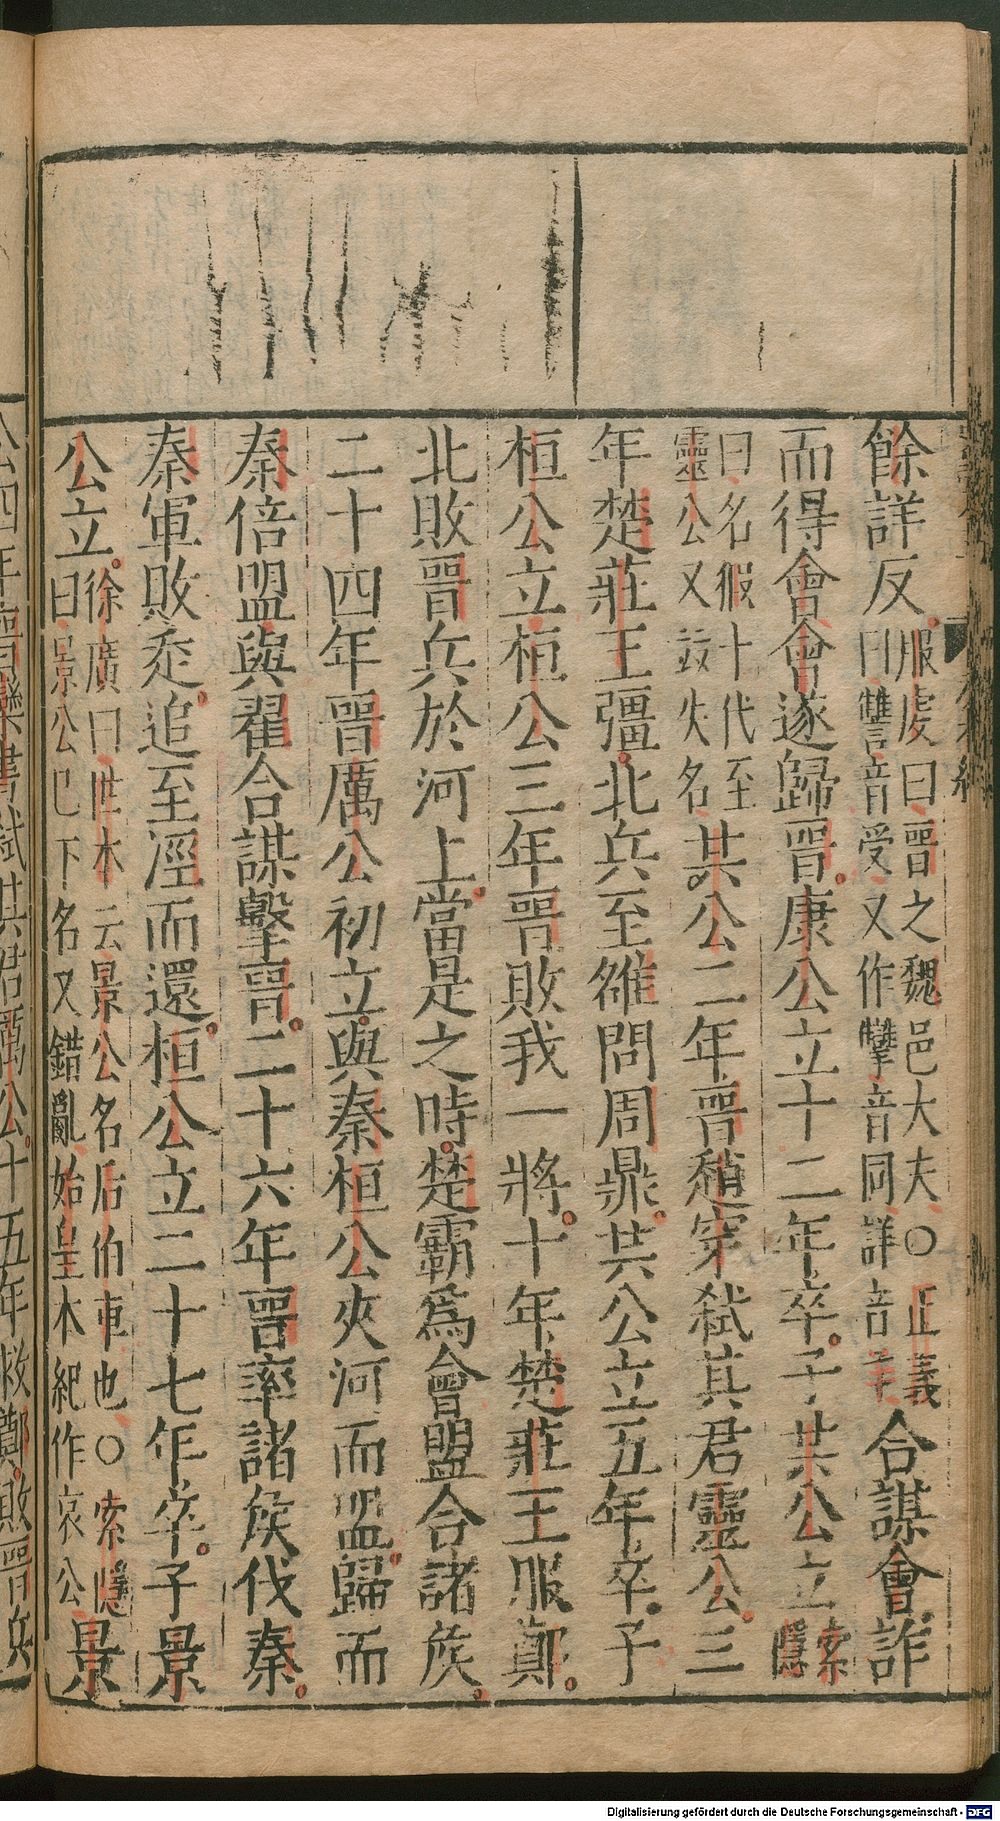 餘詳反服虔曰晉之魏邑大夫〇正義曰讐音受又作犨音同詳音羊合謀會詐
而得會會遂歸晉康公立十二年卒子共公立索隱
曰名假十代至靈公又竝失名共公二年晉趙穿弑其君靈公三
年楚莊王彊北兵至雒問周鼎共公立五年卒子
桓公立桓公三年晉敗我一將十年楚莊王服鄭
北敗晉兵於河上當是之時楚霸爲會盟合諸侯
二十四年晉厲公初立與秦桓公夾河而盟歸而
秦倍盟與翟合謀擊晉二十六年晉率諸侯伐秦
秦軍敗走追至涇而還桓公立二十七年卒子景
公立徐廣曰世本云景公名后伯車也〇索隱曰景公已下名又錯亂始皇本紀作哀公景
公四年晉欒書弑其君厲公十五年救鄭敗晉兵
Digitalisierung gefördert durch die Deutsche Forschungsgemeinschaft - DFG